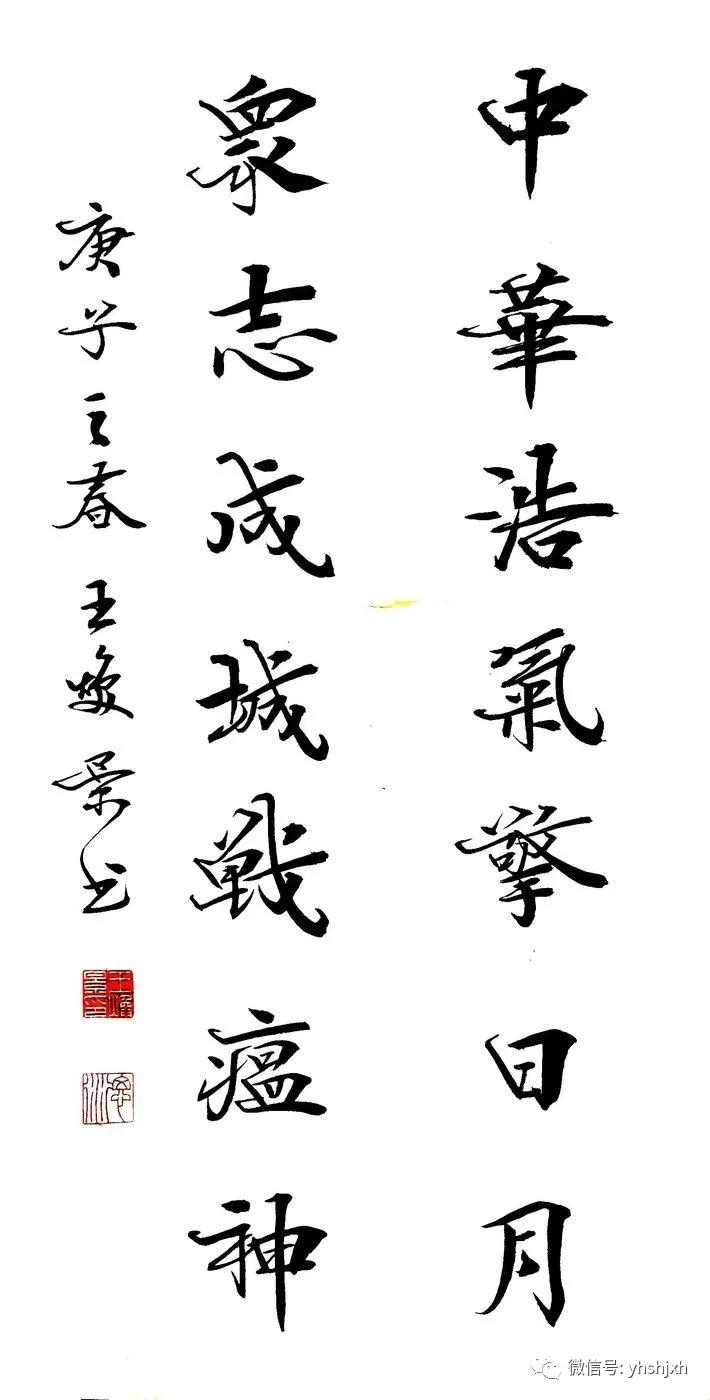 中華浩氣擎日月
衆志成城戰瘟神
庚子立春 王焕景书
微信号: yhshjxh